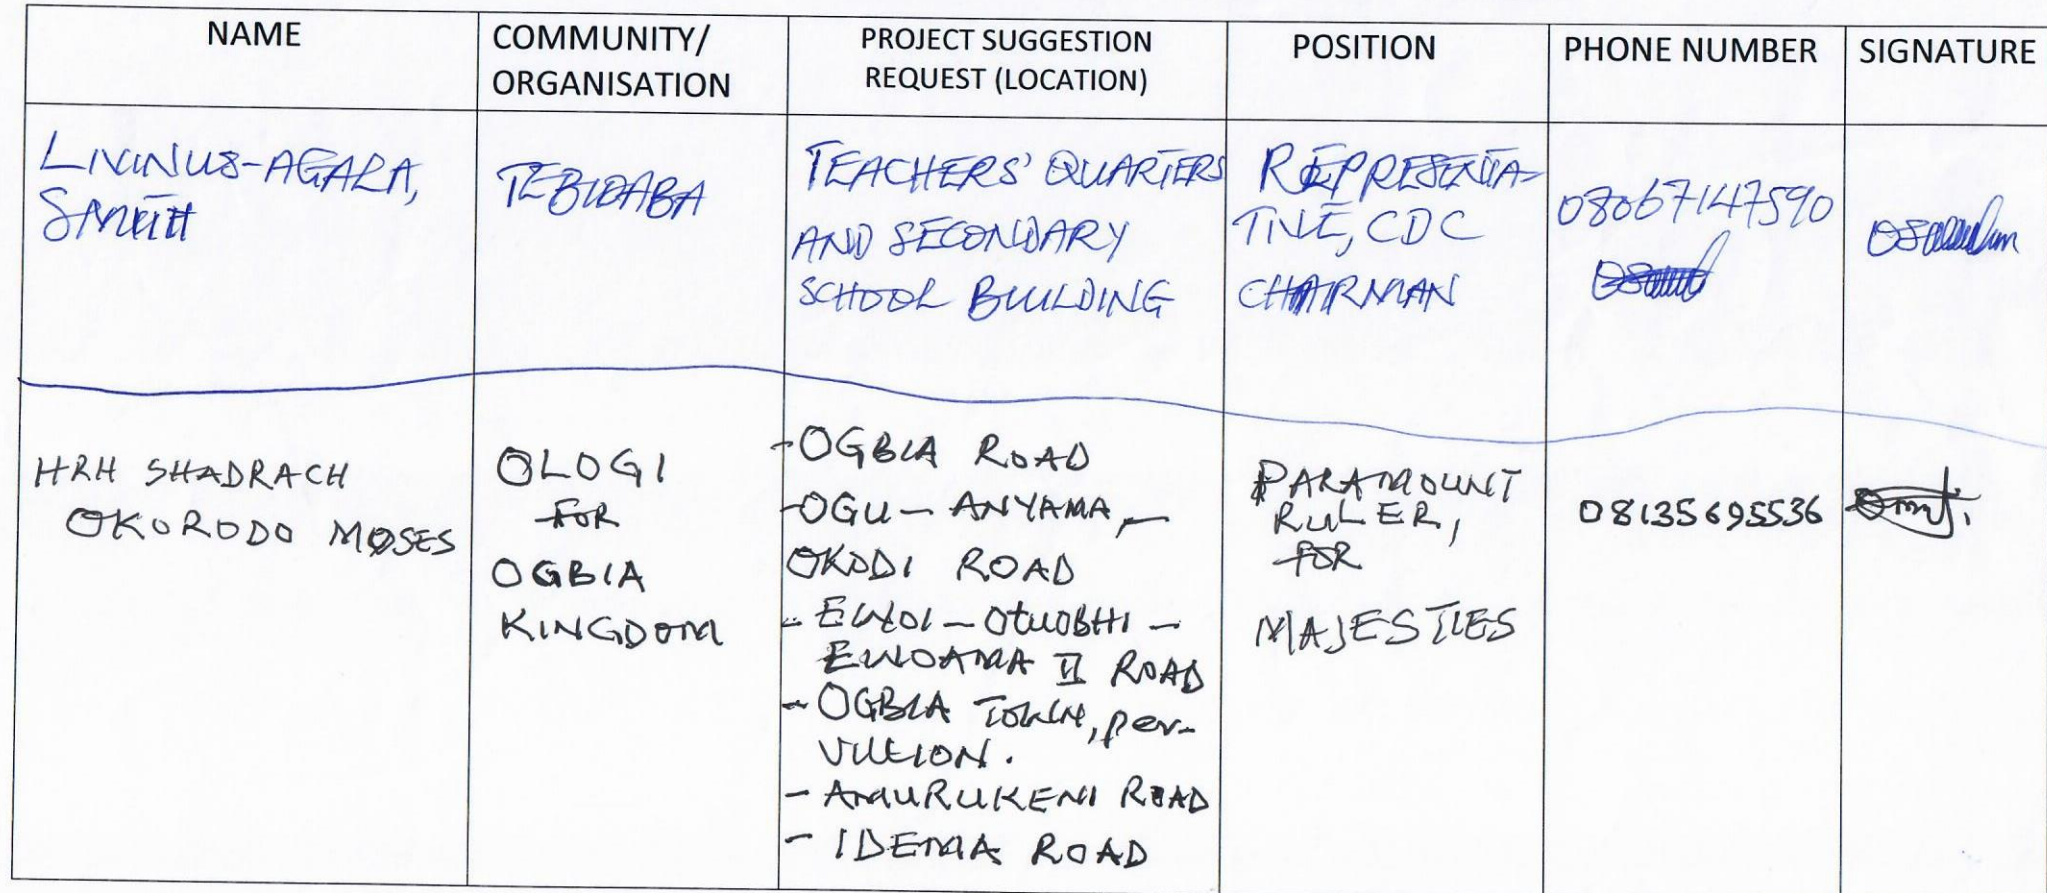 NAME
COMMUNITY/
ORGANISATION
PROJECT SUGGESTION
REQUEST (LOCATION)
POSITION
PHONE NUMBER
SIGNATURE
LIVINUS-AGARA,
SMITH
TEBIDABA
TEACHERS' QUARTERS
AND SECONDARY
SCHOOL BUILDING
REPRESENTA-
TIVE, CDC
CHAIRMAN
08067147590
HRH SHADRACH
OKORODO MOSES
OLOGI
FOR
OGBIA
KINGDOM
-OGBIA ROAD
-OGU - ANYAMA, -
OKODI ROAD
- EWOI - OtUOBHI -
EWOAMA II ROAD
- OGBIA TOWN, per-
VILLION.
- AMURUKENI ROAD
- IDEMA ROAD
PARAMOUNT
RULER,
FOR
MAJESTIES
08135695536